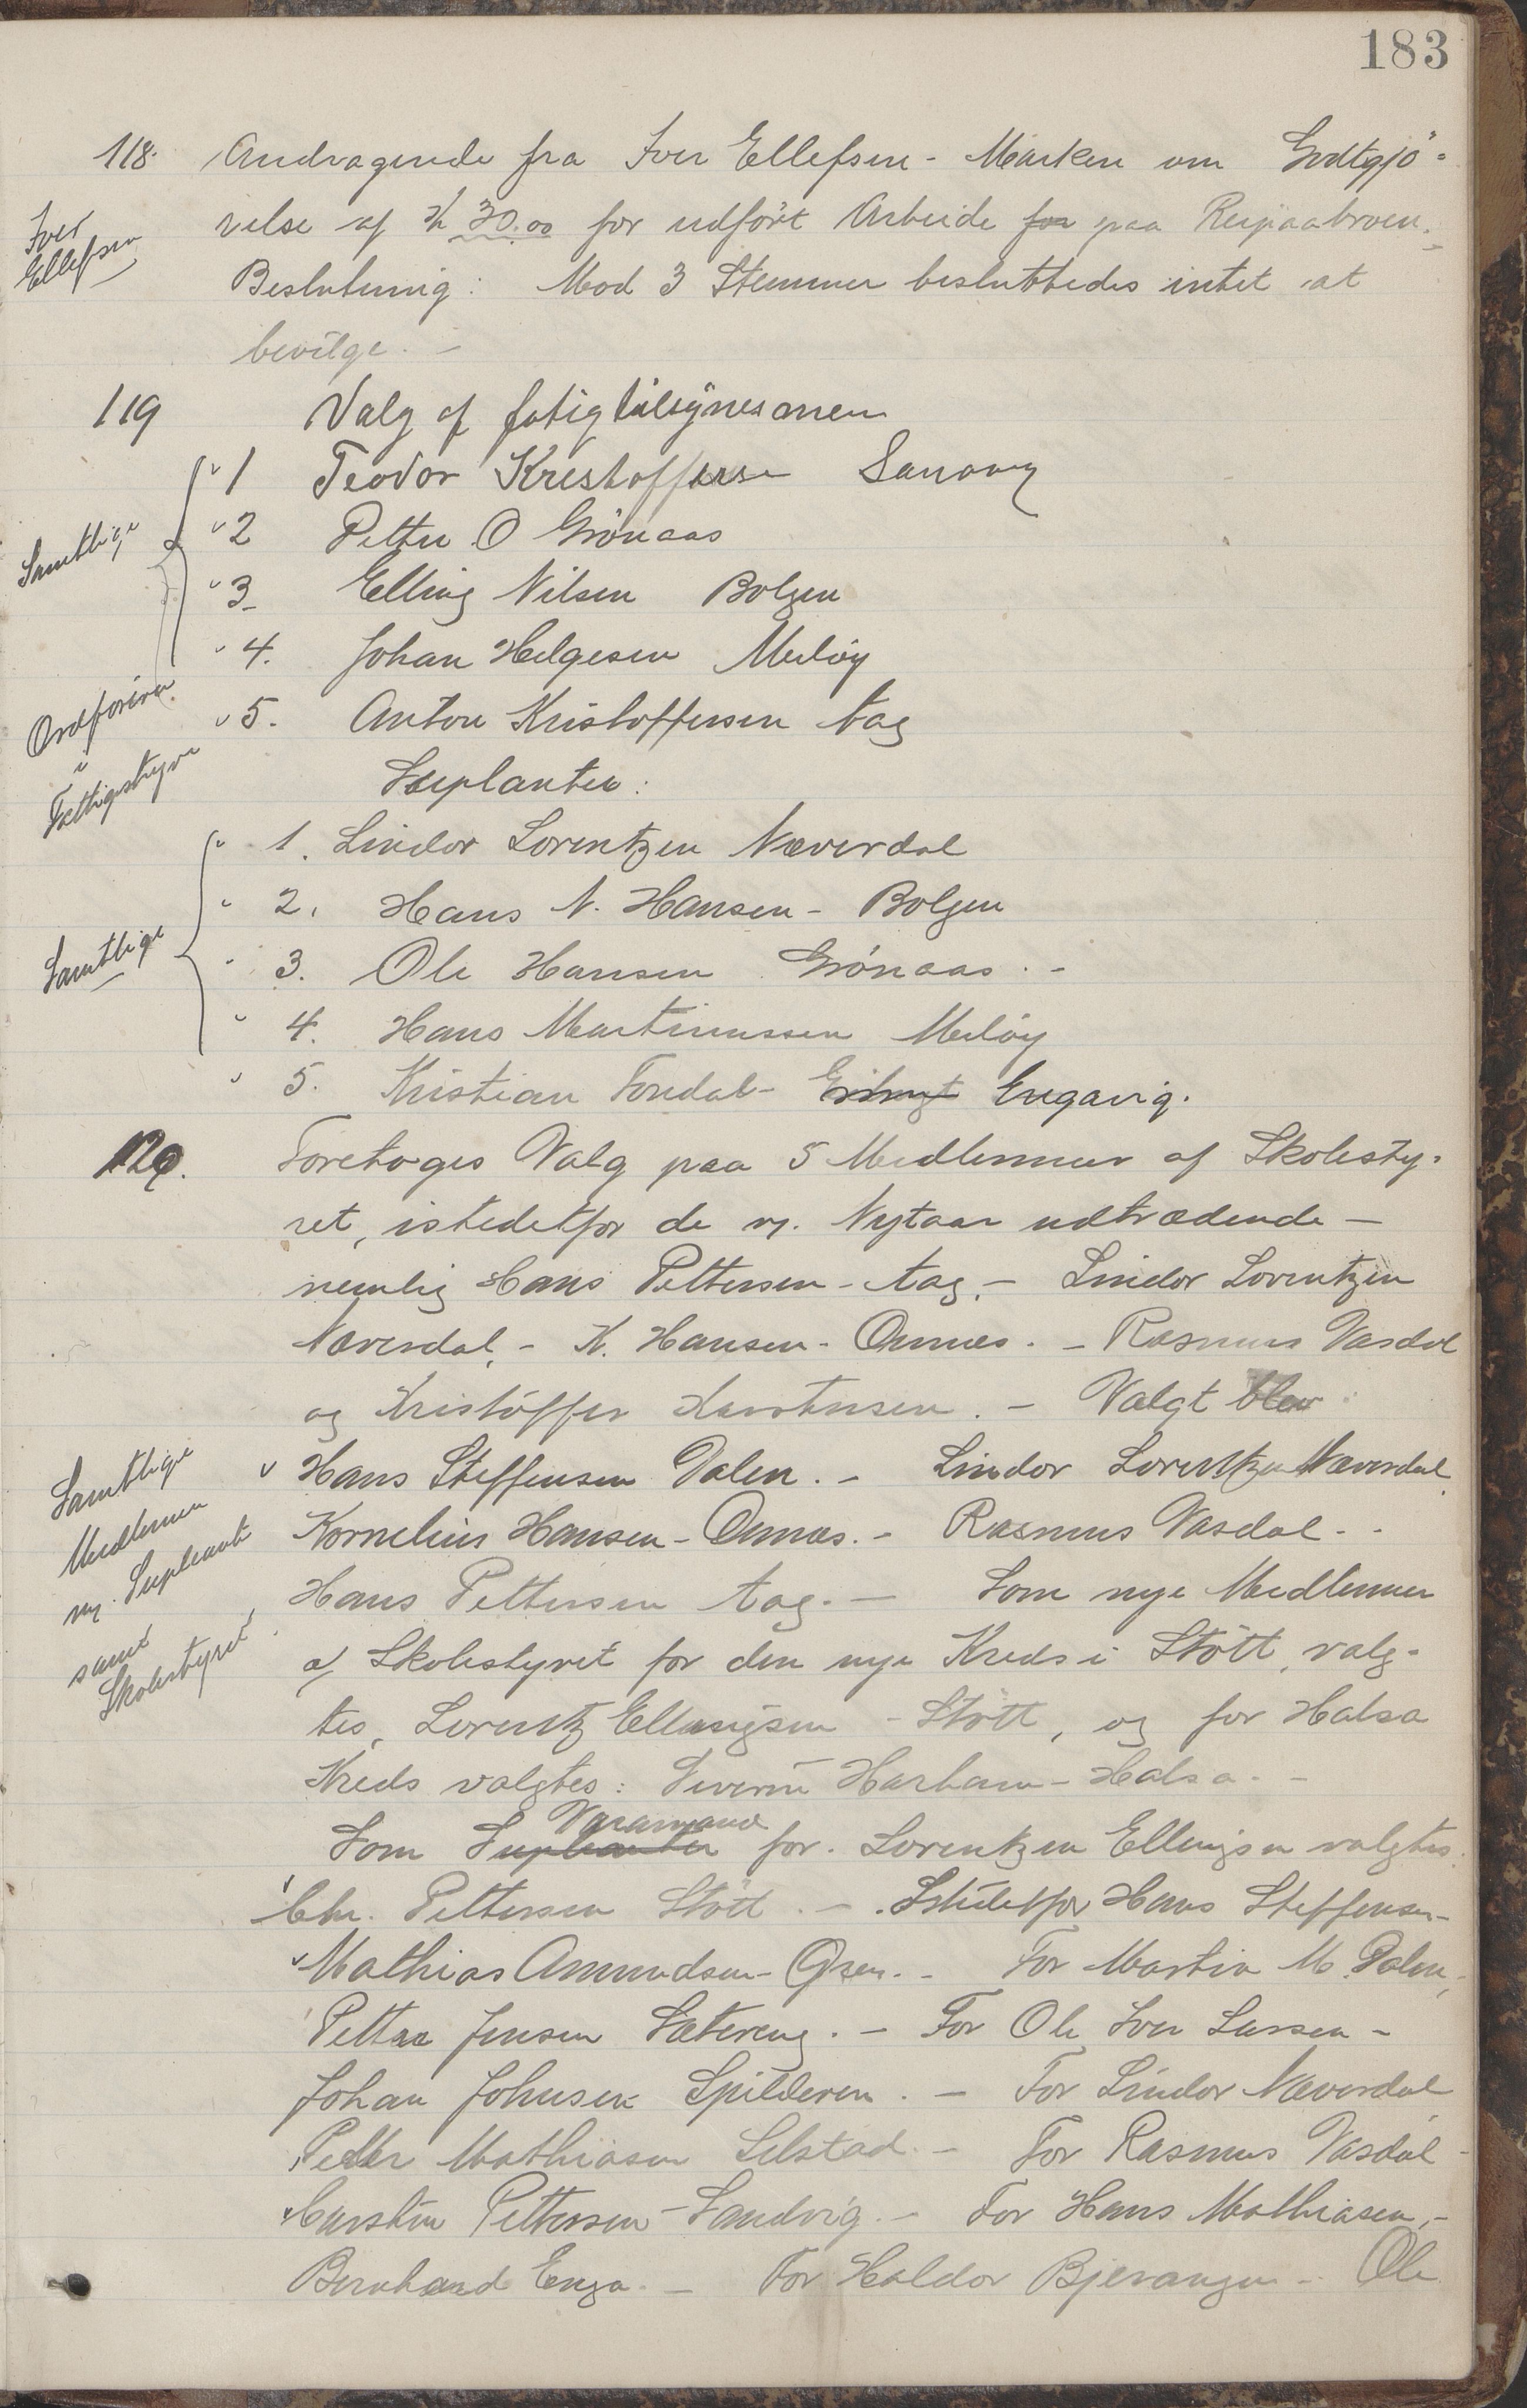 183
118. Andragende fra Iver Ellefsen - Marken om Godtgjö-
Iver
Ellefsen
relse af Kr 30.00 for udfört Arbeide for paa Reipaabroen.
Beslutning: Mod 3 Stemmer besluttedes intet at
bevilge. -
119 Valg af fatigtilsynesmen
Samtlige
1 Teodor Kristoffersen
2 Petter O Grönaas
3 Elling Nilsen Bolgen
4. Johan Helgesen Melöy
Ordförer
i
Fattigstyre
5. Anton Kristoffersen Aag
Suplanter:
Samtlige
1. Lindor Lorentzen Næverdal
2. Hans N. Hansen - Bolgen
3. Ole Hansen Grönaas. -
4. Hans Martinussen Melöy
5. Kristian Foredal - Engavig.
120. Foretoges Valg paa 5 Medlemmer af Skolesty-
ret, istedetfor de v. Nytaar udtrædende -
nemlig Hans Pettersen - Aag. - Lindor Lorentzen
Næverdal. - K. Hansen - Ørnæs. - Rasmus Vasdal
og Kristoffer Karstensen. - Valgt blev:
Samtlige
Medlemmer
og Supleanter
samt
Skolestyret
Hans Steffensen Dalen. - Lindor Lorentzen Næverdal
Kornelius Hansen - Ørnæs. - Rasmus Vasdal. -
Hans Pettersen Aag. - Som nye Medlemmer
af Skolestyret for den nye Kreds i Stött, valg-
tes, Lorentz Ellingsen - Stött, og for Halsa
Kreds valgtes: Harham - Halsa. -
Varamand
Som Supleanter for. Lorentzen Ellingsen valgtes
Chr. Pettersen Stött. - Istedetfor Hans Steffensen -
Mathias Amundsen - Øren. - For Martin M. Dalen,
Petter Jensen Sætereng. - For Ole Iver Larsen -
Johan Johnsen Spilderen. - For Lindor Næverdal
Peder Mathiasen Selstad. - For Rasmus Vasdal -
Karstin Pettersen - Sandvig. - For Hans Mathiasen, -
Bernhard Enga. - For Haldor Bjerangen - Ole